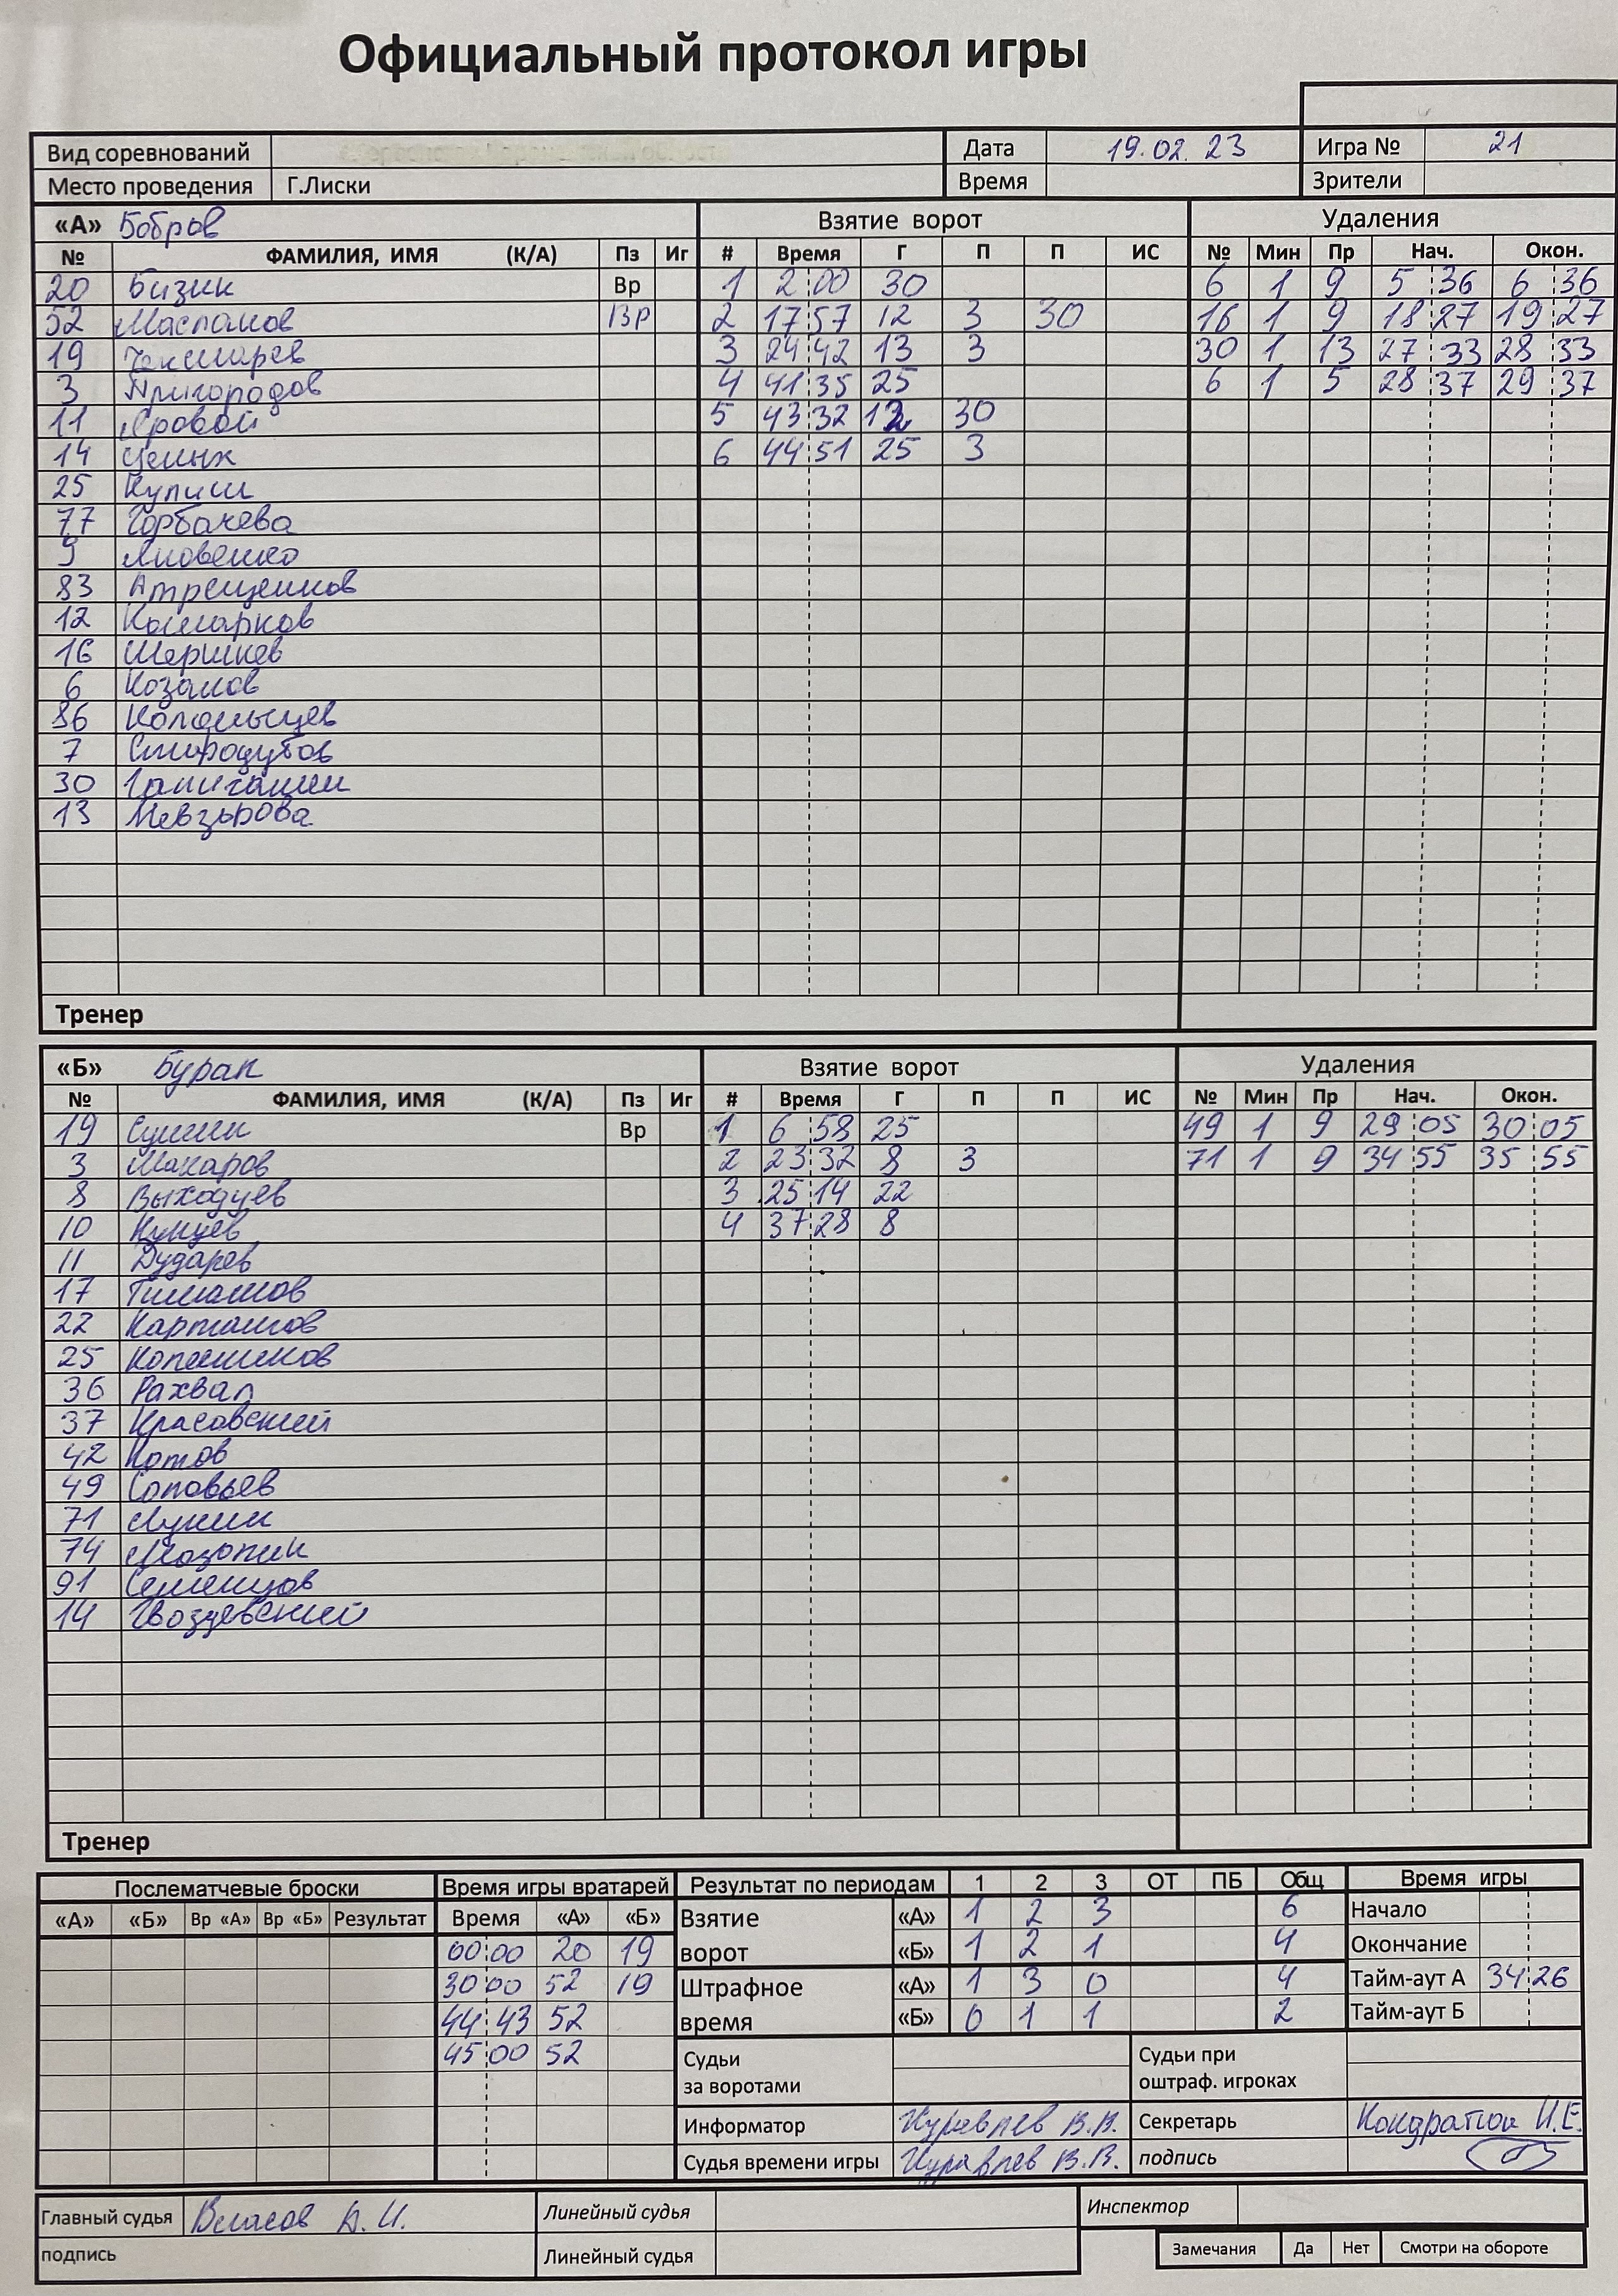 Официальный протокол игры
Вид соревнований Дата 19.02.23 Игра № 21
Место проведения Г.Лиски Время Зрители
«А» Бобров Взятие ворот Удаления
№ ФАМИЛИЯ, ИМЯ (К/А) Пз Иг # Время Г П П ИС № Мин Пр Нач. Окон.
20 Бизин Вр 1 2:00 30 6 1 9 5 36 6 36
52 Маспанов Вр 2 17 57 12 3 30 16 1 9 18 27 19 27
19 3 24 42 13 3 30 1 13 27 33 28 33
3 Пригородов 4 41 35 25 6 1 5 28 37 29 37
11 Яровой 5 43 32 30
14 Целых 6 44 51 25 3
25
77 Горбачева
9 Яковенко
83 Атрещенков
12 Кошарков
16 Шершнев
6 Козлов
86
7 Стародубов
30
13 Мевзырова
Тренер
«Б» Буран Взятие ворот Удаления
№ ФАМИЛИЯ, ИМЯ (К/А) Пз Иг # Время Г П П ИС № Мин Пр Нач. Окон.
19 Сушин Вр 1 6 58 25 49 1 9 29 05 30 05
3 Макаров 2 23 32 8 3 71 1 9 34 55 35 55
8 Выходцев 3 25 14 22
10 Кунцев 4 37 28 8
11 Дударев
17 Тимашов
22 Карташов
25
36 Рахвал
37 Красовский
42 Котов
49 Соловьев
71 Лукин
74 Мазопин
91 Семенцов
14 Гвоздевский
Тренер
Послематчевые броски Время игры вратарей Результат по периодам 1 2 3 ОТ ПБ Общ Время игры
«А» «Б» Вр «А» Вр «Б» Результат Время «А» «Б» Взятие «А» 1 2 3 6 Начало
00:00 20 19 ворот «Б» 1 2 1 4 Окончание
30 00 52 19 Штрафное «А» 1 3 0 4 Тайм-аут А 34 26
44 43 52 время «Б» 0 1 1 2 Тайм-аут Б
45 00 52 Судьи за воротами Судьи при оштраф. игроках
Информатор Журавлев В.В. Секретарь И.Е.
Судья времени игры Журавлев В.В. подпись
Главный судья Власов А.И. Линейный судья Инспектор
подпись Линейный судья Замечания Да Нет Смотри на обороте